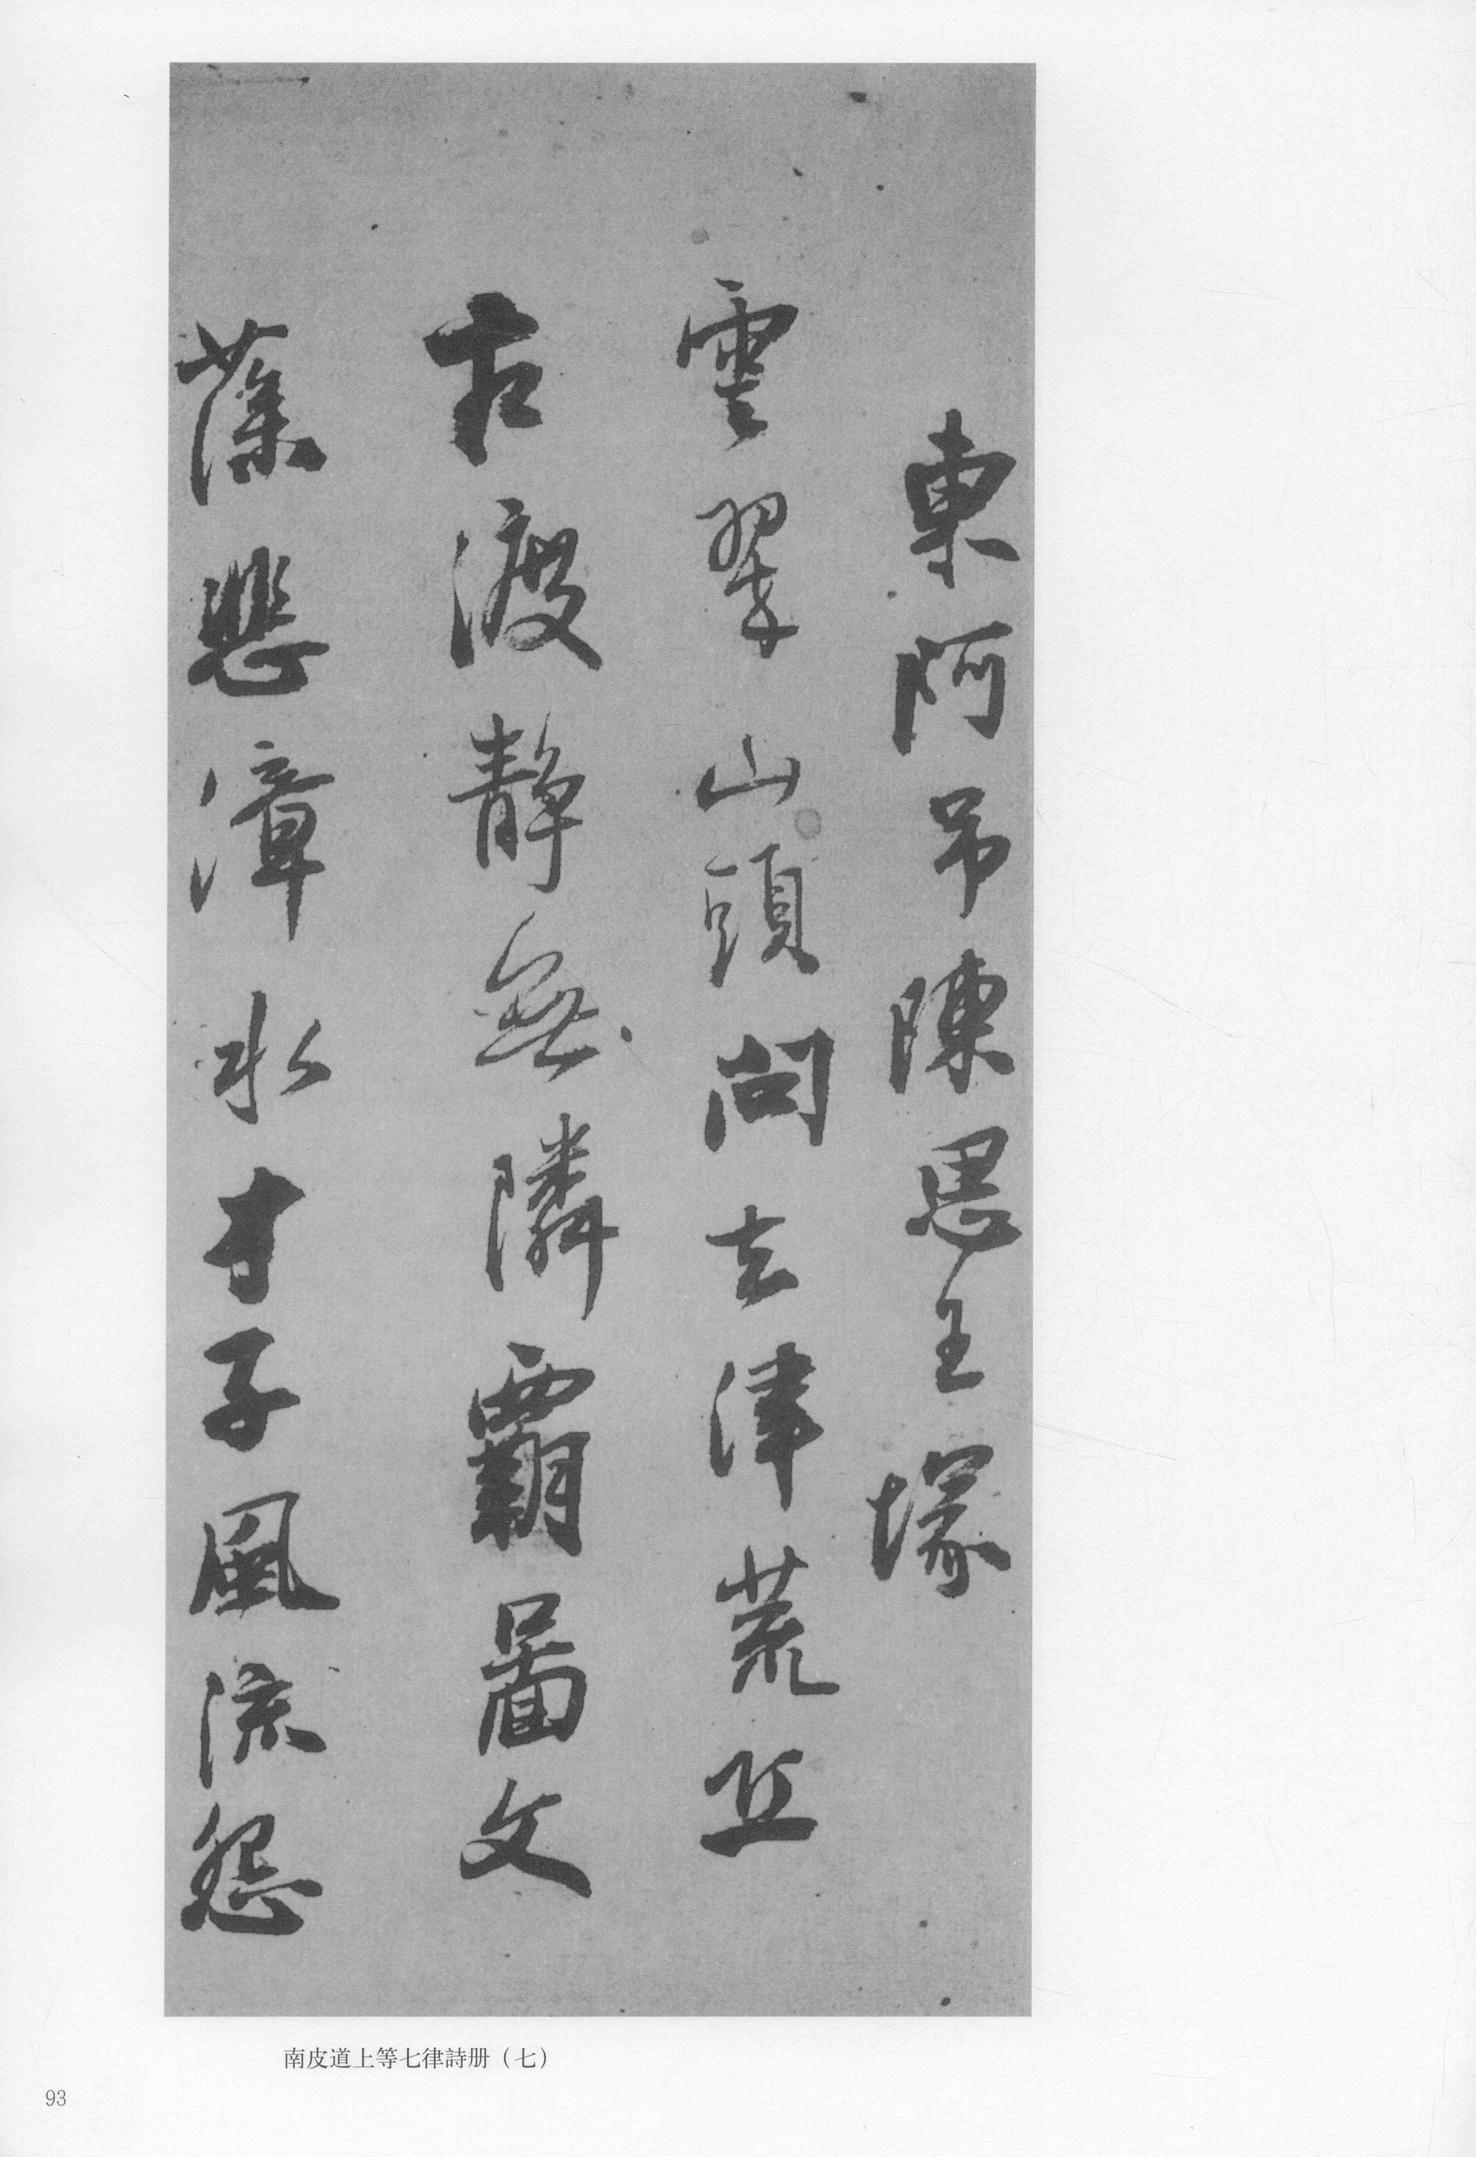 東阿吊陳思王塚
雲翠山頭問去津荒丘
古渡静無隣覇圖文
藻悲漳水才子風流怨
南皮道上等七律詩册（七）
93